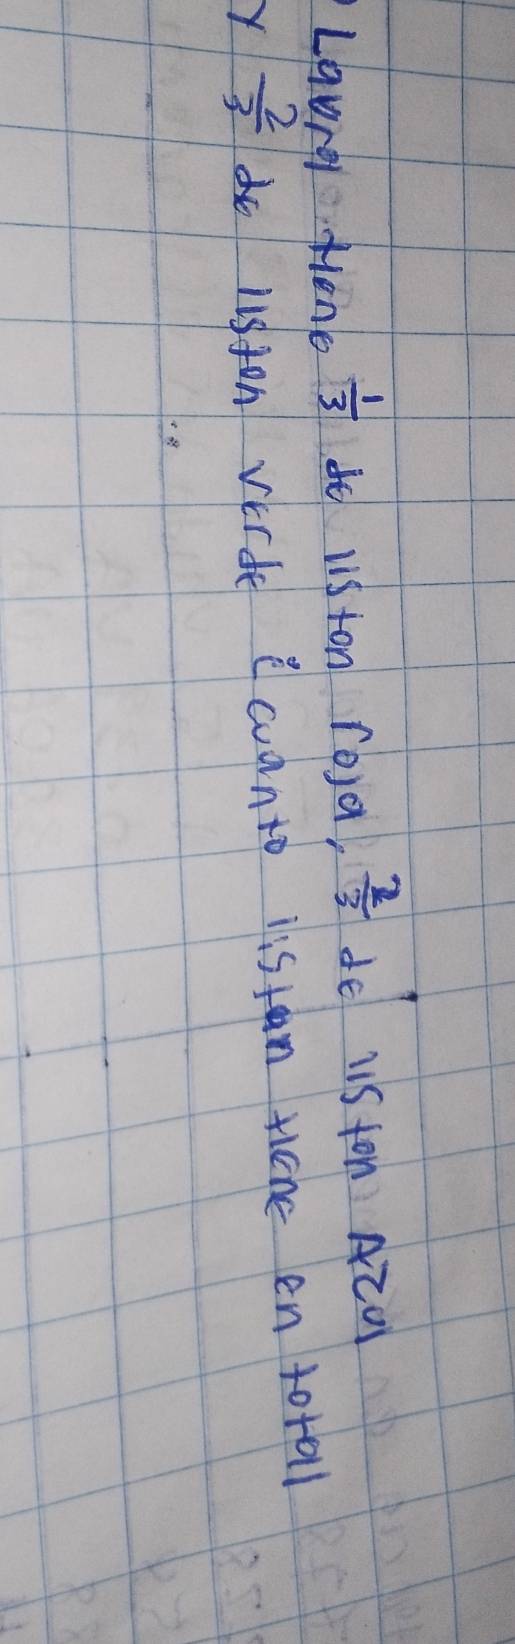 Laura tiene 1/3 de liston roja, 2/3 de liston Azul
Y 2/3 de liston verde ¿cuanto liston tiene en total